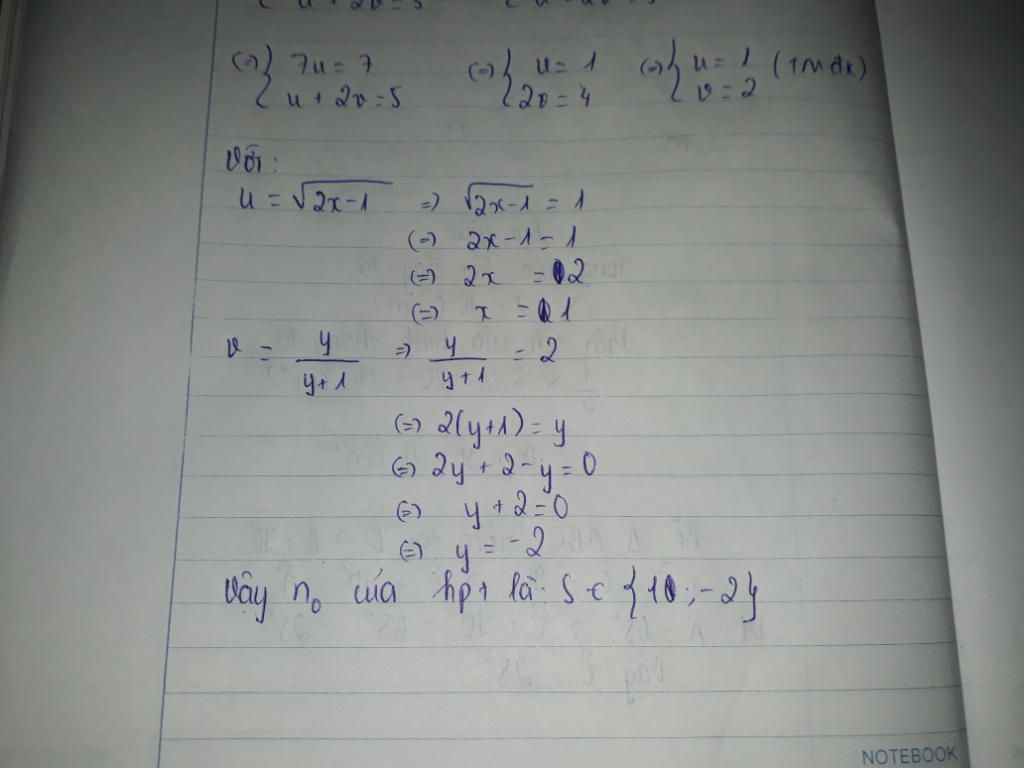 u + 2v = 5
(=) { 7u = 7 (=) { u = 1 (=) { u = 1 (TMĐK)
u + 2v = 5 2v = 4 v = 2
Với:
u = √2x-1 => √2x-1 = 1
(=) 2x-1 = 1
(=) 2x = 2
(=) x = 1
v = y/y+1 => y/y+1 = 2
(=) 2(y+1) = y
(=) 2y + 2 - y = 0
(=) y + 2 = 0
(=) y = -2
Vậy n0 của hpt là: S ∈ {1 ; -2}
NOTEBOOK